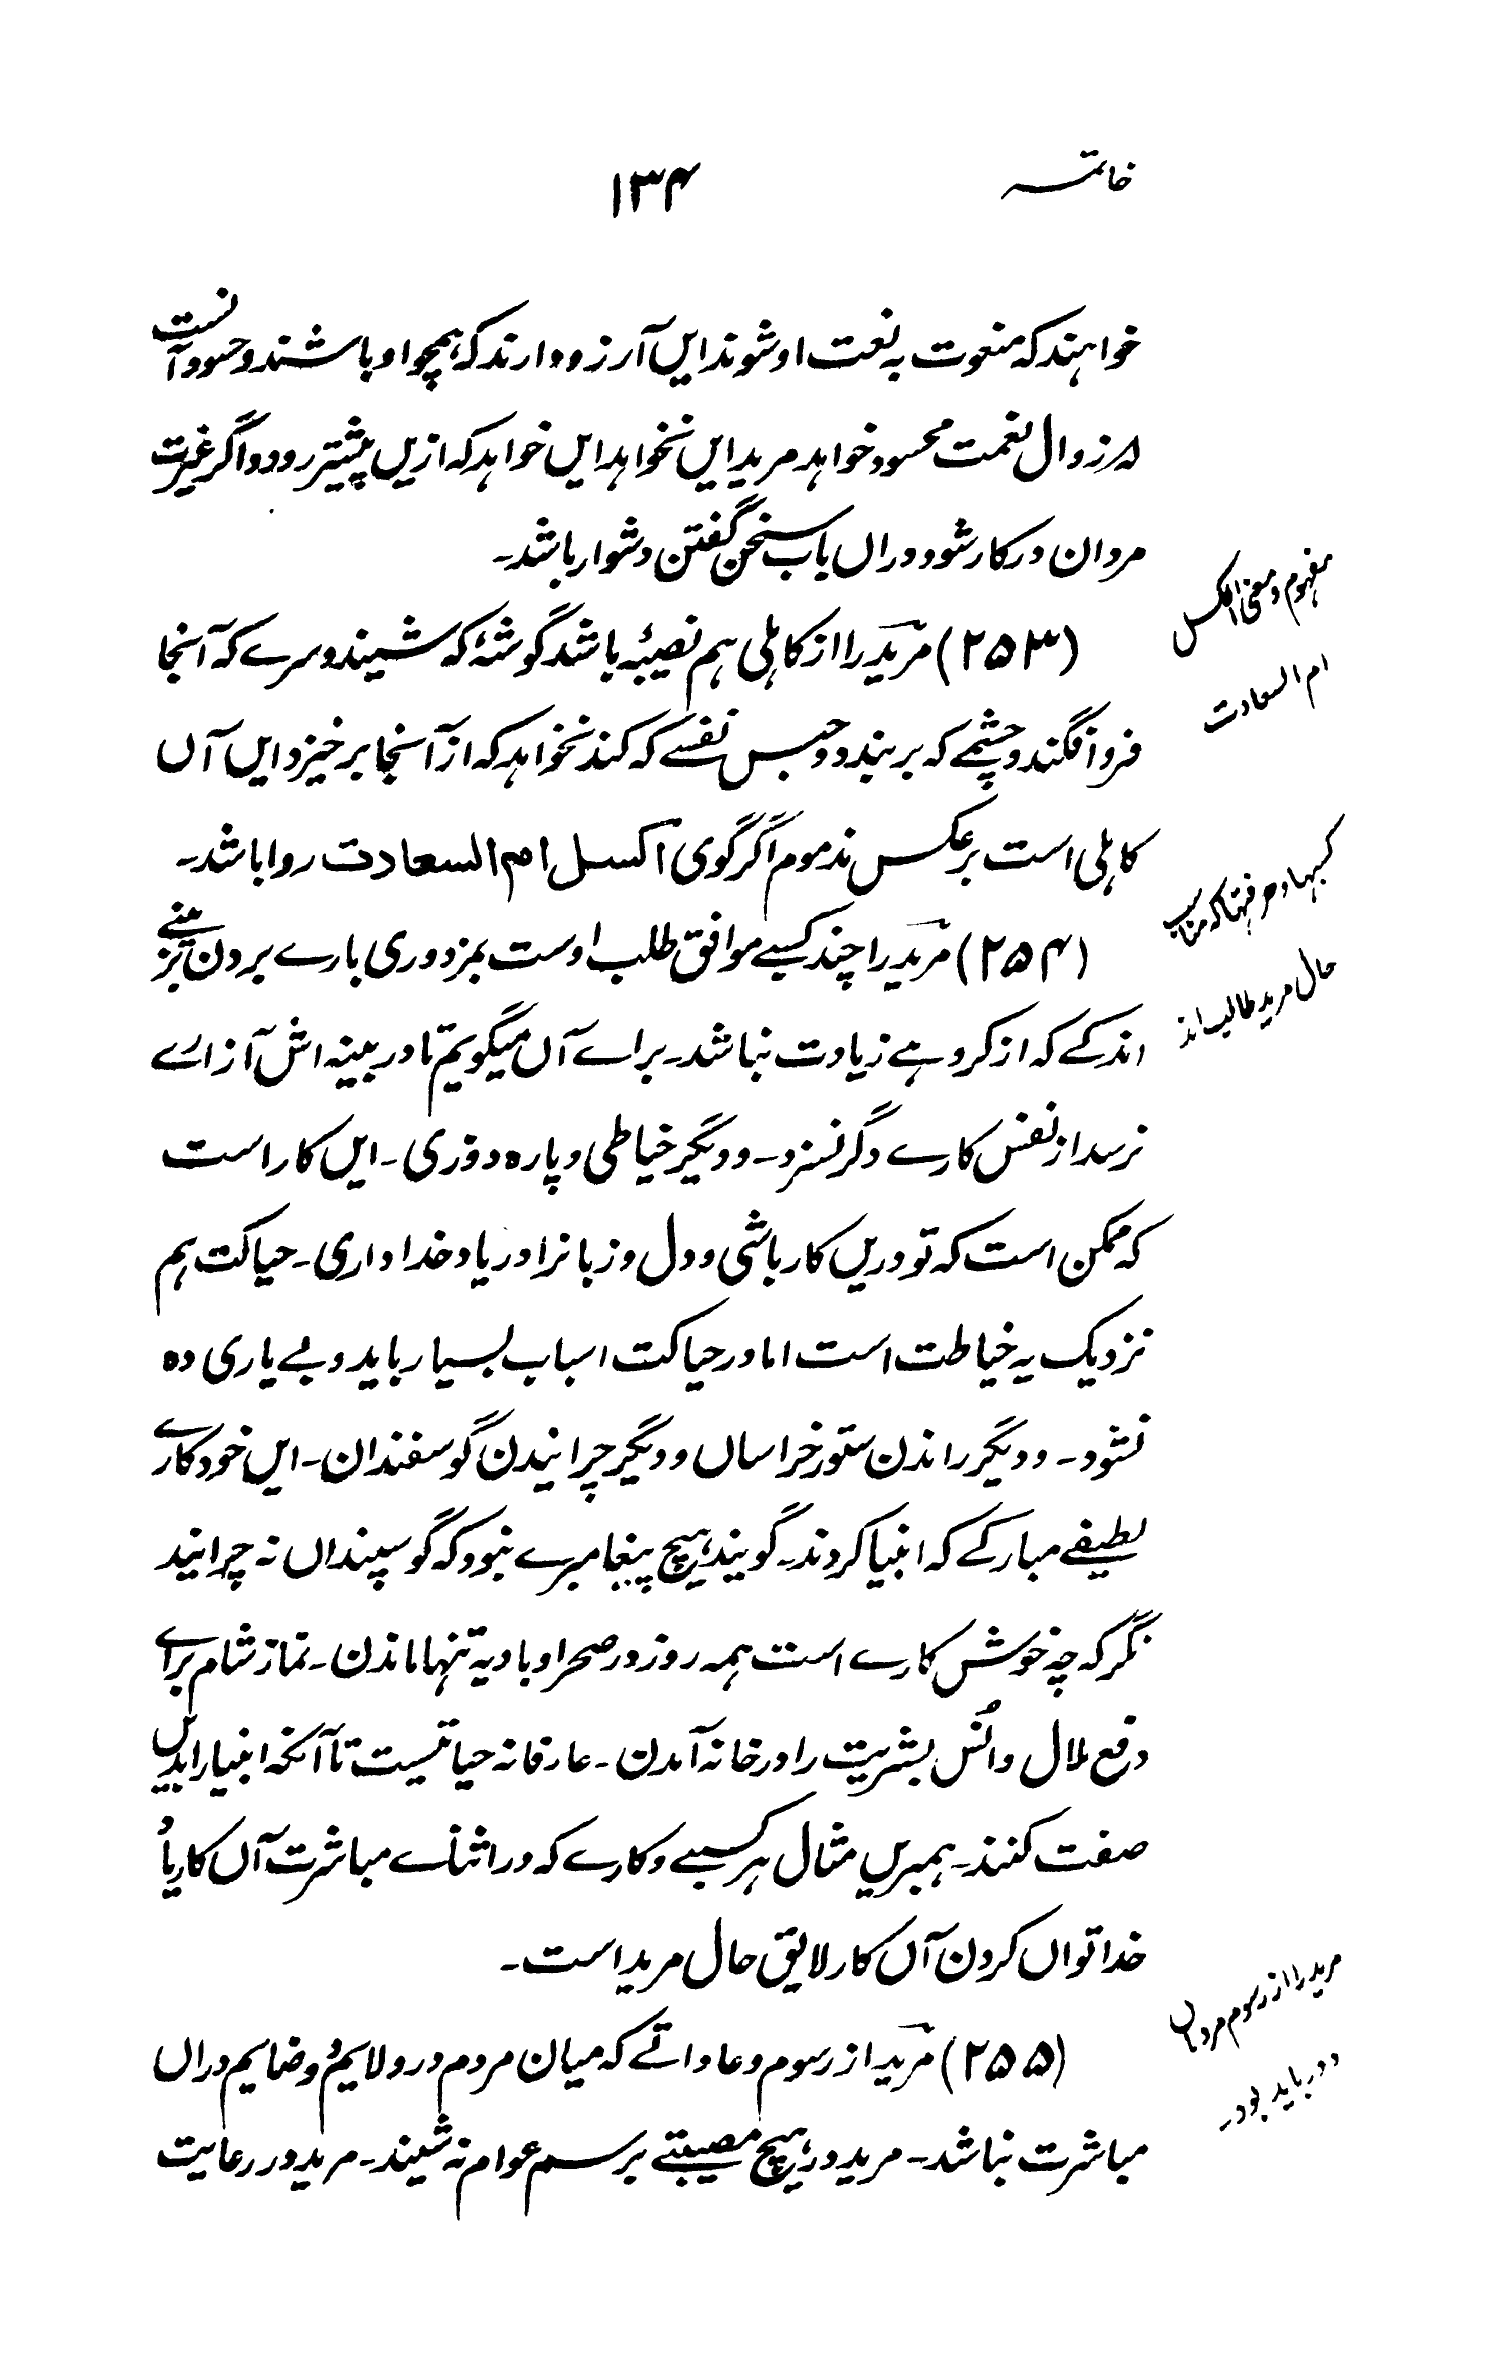 خاتمہ
۱۳۴
خواہند کہ منعوت بہ نعت او شوند ایں آرزو دارند کہ ہمچو او باشند و حسود آنست
کہ زوال نعمت محسود خواہد مرید ایں نخواہد ایں خواہد کہ ازیں پیشتر رود و اگر غیرت
مردان در کار شود دراں باب سخن گفتن دشوار باشد۔
مفہوم و معنی الکسل
ام السعادت
(۲۵۳) مرید را از کاہلی ہم نصیبۂ باشد گوشۂ کہ شیند و سرے کہ آنجا
فرو افگند و چشمے کہ بر بندد و حبس نفسے کہ کند نخواہد کہ از آنجا بر خیزد ایں آں
کاہلی است بر عکس مذموم اگر گوی الکسل ام السعادت روا باشد۔
کسبہا و حرفتہا کہ مناسب
حال مرید طالب اند
(۲۵۴) مرید را چند کسبے موافق طلب اوست بمزدوری بارے بردن
اندکے کہ از کروہے زیادت نباشد۔ براے آں میگویم تا در سینہ اش آزارے
نرسد از نفس کارے دگر نسزد۔ و دیگر خیاطی و پارہ دوزی۔ ایں کار است
کہ ممکن است کہ تو دریں کار باشی و دل و زبانرا در یاد خدا داری۔ حیاکت ہم
نزدیک بہ خیاطت است اما در حیاکت اسباب بسیار باید و بے یاری دہ
نشود۔ و دیگر راندن ستور خراساں و دیگر چرانیدن گوسفندان۔ ایں خود کارے
لطیفے مبارکے کہ انبیا کردند۔ گویند ہیچ پیغامبرے نبود کہ گوسپنداں نہ چرانید
نگر کہ چہ خوش کارے است ہمہ روز در صحرا و بادیہ تنہا ماندن۔ نماز شام براے
دفع ملال و انُس بشریت را در خانہ آمدن۔ عارفانہ حیاتیست تا آنکہ انبیا را بدیں
صفت کنند۔ ہمبریں مثال ہر کسبے و کارے کہ در اثناے مباشرت آں کار یادُ
خدا تواں کردن آں کار لایق حال مرید است۔
مرید را از رسوم مرداں
دور باید بود۔
(۲۵۵) مرید از رسوم و عاداتے کہ میان مردم در ولایمُ و ضایم دراں
مباشرت نباشد۔ مرید در ہیچ مصیبتے بر سم عوام نہ شیند۔ مرید در رعایت